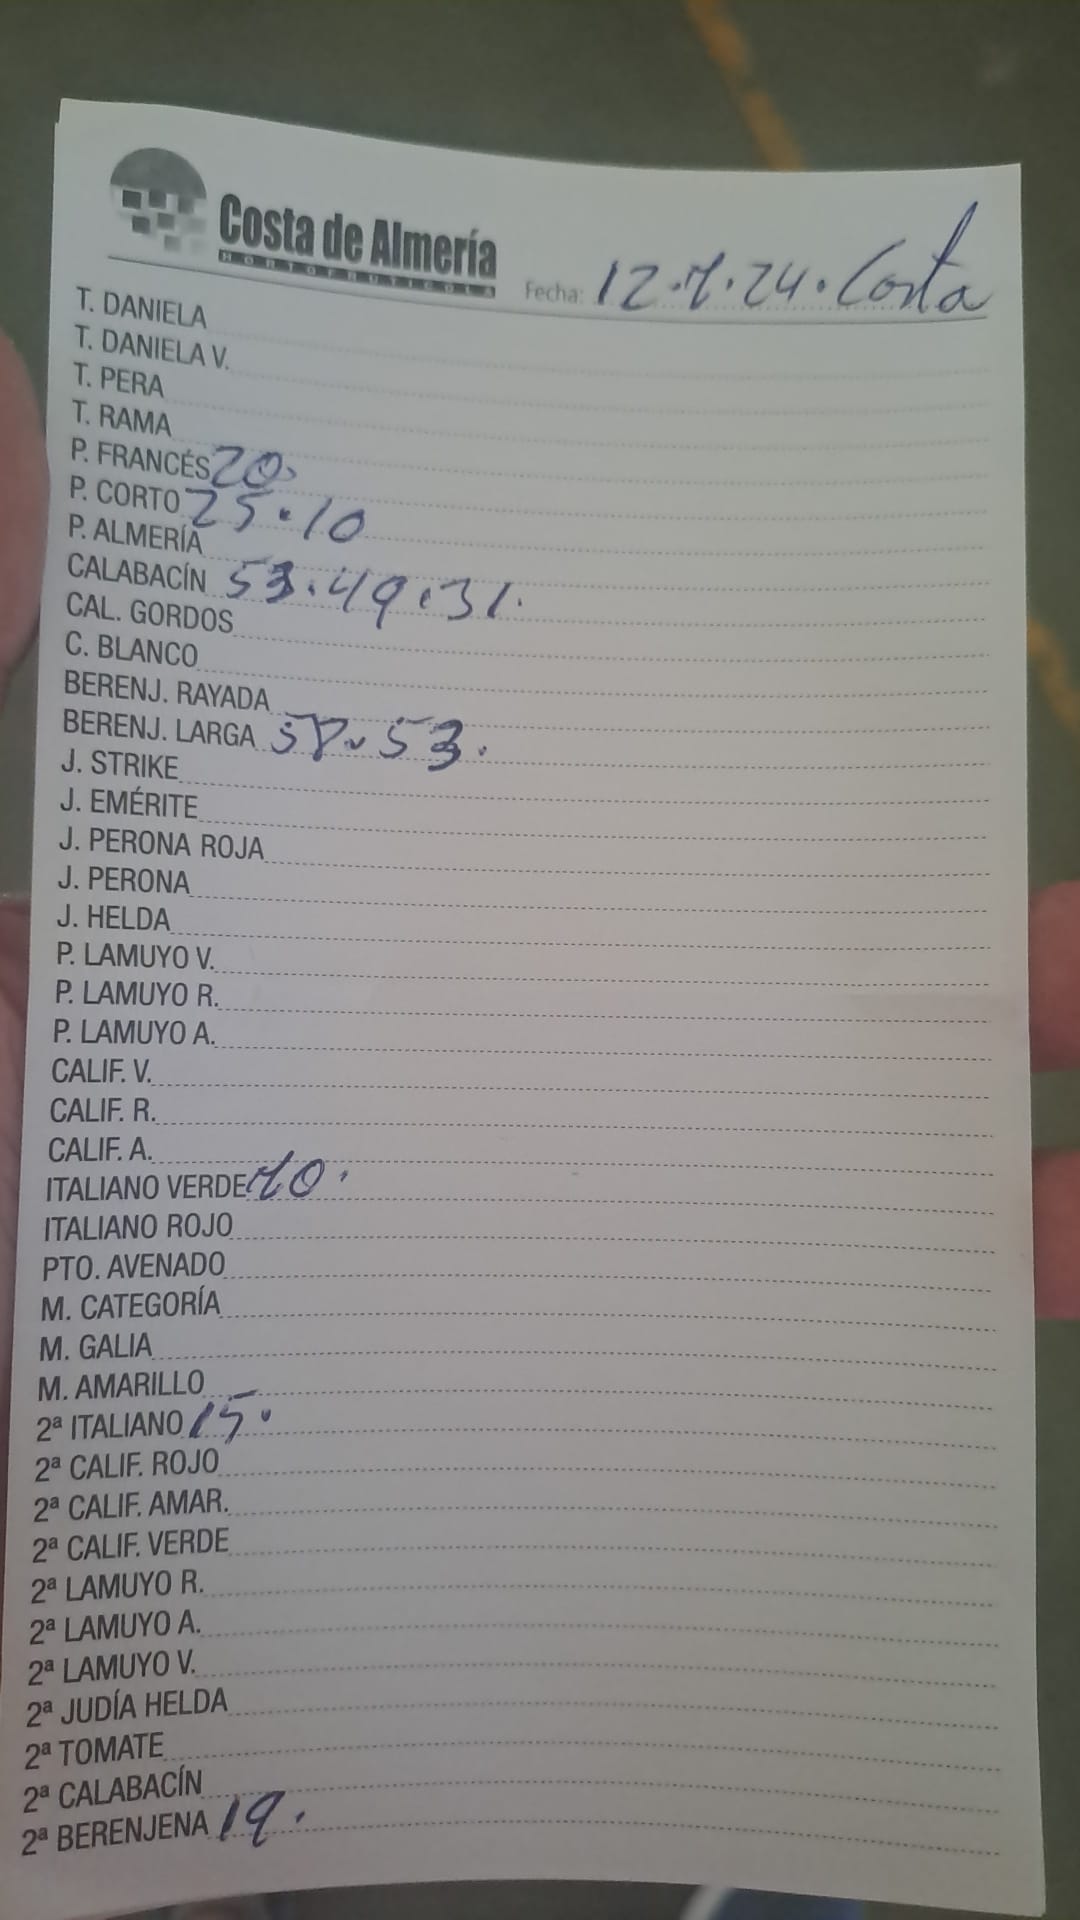 Costa de Almería
HORTOFRUTICOLA
Fecha: 12.7.24. Costa
T. DANIELA
T. DANIELA V.
T. PERA
T. RAMA
P. FRANCÉS 20.
P. CORTO 25.10
P. ALMERÍA
CALABACÍN 53.49.31.
CAL. GORDOS
C. BLANCO
BERENJ. RAYADA
BERENJ. LARGA 58.53.
J. STRIKE
J. EMÉRITE
J. PERONA ROJA
J. PERONA
J. HELDA
P. LAMUYO V.
P. LAMUYO R.
P. LAMUYO A.
CALIF. V.
CALIF. R.
CALIF. A.
ITALIANO VERDE 70.
ITALIANO ROJO
PTO. AVENADO
M. CATEGORÍA
M. GALIA
M. AMARILLO
2ª ITALIANO 15.
2ª CALIF. ROJO
2ª CALIF. AMAR.
2ª CALIF. VERDE
2ª LAMUYO R.
2ª LAMUYO A.
2ª LAMUYO V.
2ª JUDÍA HELDA
2ª TOMATE
2ª CALABACÍN
2ª BERENJENA 19.